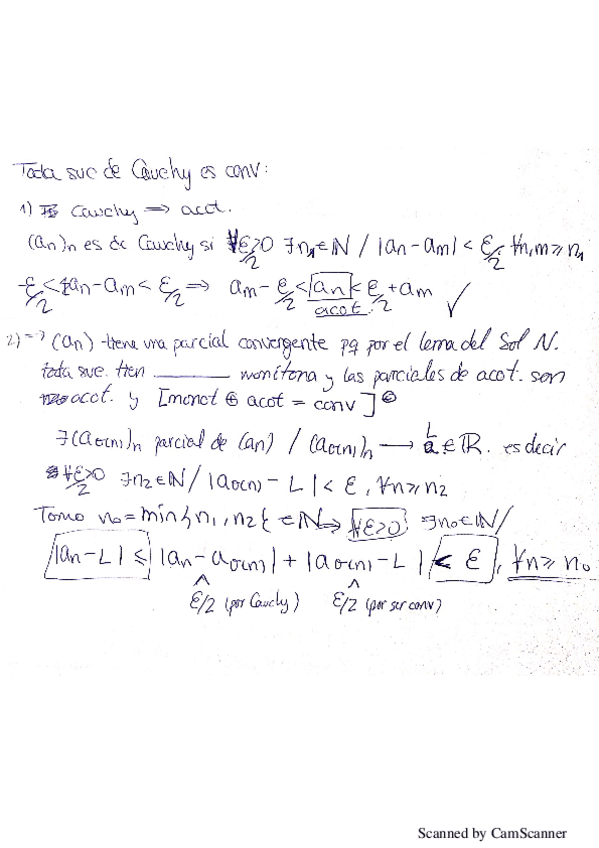 Toda suc de Cauchy es conv:
1) Cauchy ⟹ acot.
(an)n es de Cauchy si ∀ε/2>0 ∃n₁∈ℕ / |an-am| < ε/2, ∀n,m≥n₁
-ε/2 < an-am < ε/2 ⟹ am-ε/2 < an < ε/2+am ✓
acot.
2) (an) tiene una parcial convergente pq por el lema del Sol N.
toda suc. tien ______ monótona y las parciales de acot. son
acot. y [monot ⊕ acot = conv]
∃(aσ(n))n parcial de (an) / (aσ(n))n → L ∈ ℝ. es decir
∀ε/2>0 ∃n₂∈ℕ / |aσ(n) - L| < ε, ∀n≥n₂
Tomo n₀=min{n₁,n₂{ ∈ℕ → ∀ε>0 ∃n₀∈ℕ/
|an-L| ≤ |an-aσ(n)| + |aσ(n)-L| < ε, ∀n≥n₀
ε/2 (por Cauchy) ε/2 (por ser conv)
Scanned by CamScanner